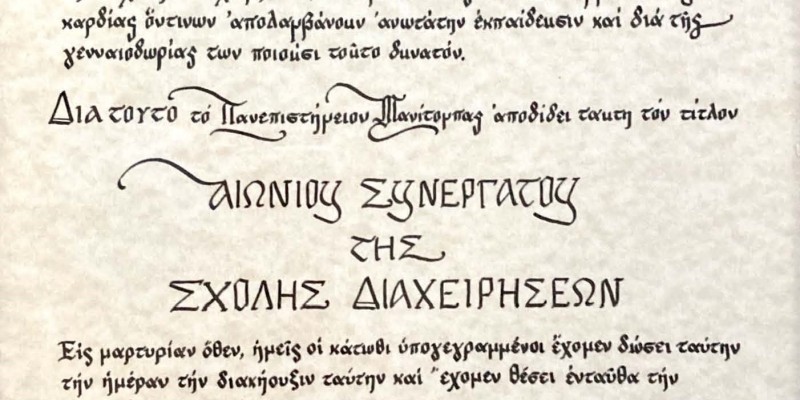 καρδίας ὅντινων ἀπολαμβάνουν ἀνωτάτην ἐκπαίδευσιν καί διά τῆς
γενναιοδωρίας των ποιοῦσι τοῦτο δυνατόν.
ΔΙΑ ΤΟΥΤΟ τό Πανεπιστήμειον Μανίτομπας ἀποδίδει ταυτη τόν τίτλον
ΑΙΩΝΙΟΥ ΣΥΝΕΡΓΑΤΟΥ
ΤΗΣ
ΣΧΟΛΗΣ ΔΙΑΧΕΙΡΗΣΕΩΝ
Εἰς μαρτυρίαν ὅθεν, ἡμεῖς οἱ κάτωθι ὑπογεγραμμένοι ἔχομεν δώσει ταύτην
τήν ἡμέραν τήν διακήουξιν ταύτην καί ἔχομεν θέσει ἐνταῦθα τήν